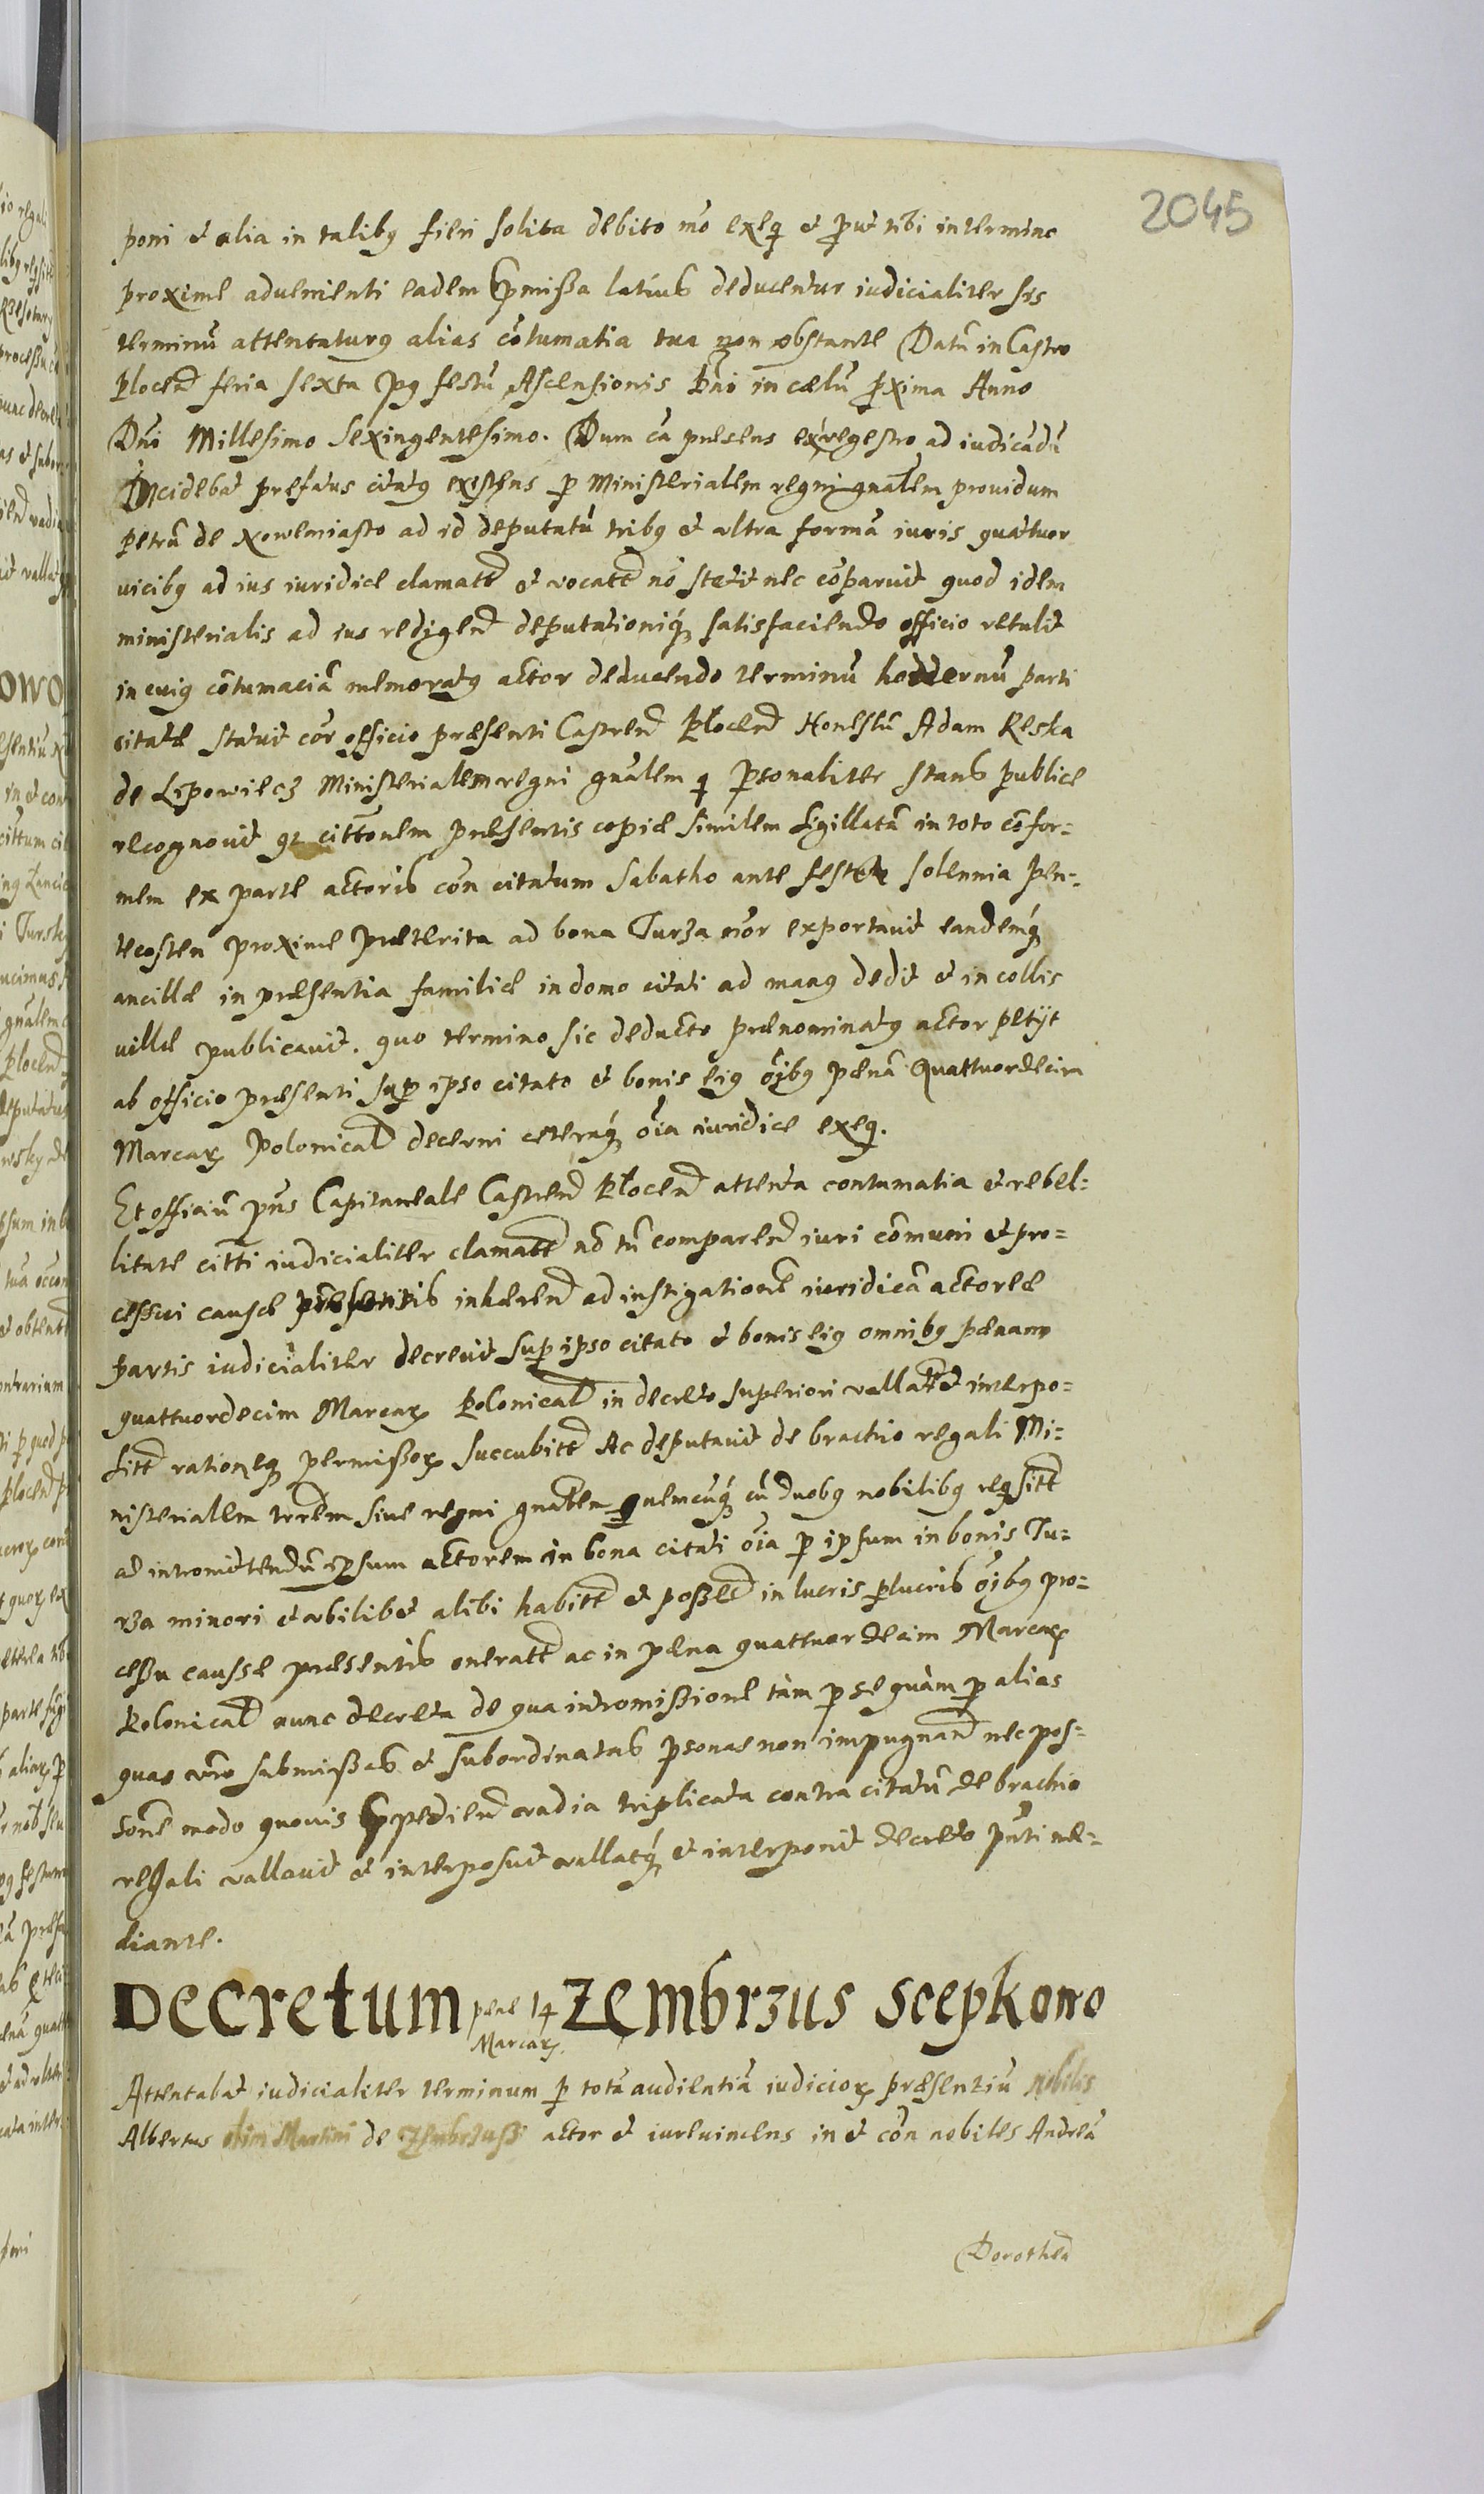 2045
poni et alia in talibꝫ fieri solita debito mō exeqͥ et ꝓut tibi in termino
proxime aduenienti eadem p̄missa latius deducentur iudicialiter sis
terminū attentaturꝫ alias cōtumatia tua non obstante Datū in Castro
Plocen̄ feria sexta pꝫ festū Ascensionis Dn̄i in cælū ꝓxima Anno
Dn̄i Millesimo Sexingentesimo. Dum cā præsens ex regestro ad iudicādū
Incidebat prefatus citatꝫ existens ꝑ Ministerialem regni gnālem prouidum
petrū de Nowemiasto ad id deputatū tribꝫ et vltra formā iuris quattuor
uicibꝫ ad ius iuridice clamatt et vocatt nō stetit nec cōparuit quod idem
ministerialis ad ius redigen̄ deputationiqꝫ satisfaciendo officio retulit
in cuiꝫ cōntumaciā memoratꝫ actor deducendo terminū hodiernū parti
citatæ statuit cōr officio præsenti Castren̄ Płocen̄ Honestū Adam Reska
de Lipowiecz Ministerialem regni gnālem qͥ ꝑsonaliter stans publice
recognouit qꝫ citt̄onem præsentis copiæ similem sigillatā in toto cōfor=
mem ex parte actoris cōn citatum Sabatho ante festa solennia pen=
tecosten proxime præterita ad bona Turza mōr exportauit eandemqꝫ
ancillæ in præsentia familiæ in domo citati ad manꝫ dedit et in collis
villæ publicauit. quo termino sic deducto prænominatꝫ actor petijt
ab officio præsenti suꝑ ipso citato et bonis eiꝫ oībꝫ pænā Quattuordecim
Marcaꝝ Polonical̄ decerni ceteraqꝫ oīa iuridice exeqͥ.
Et officiū pn̄s Capitaneale Castren̄ Płocen̄ attenta contumatia et rebel=
litate citt̄i iudicialiter clamatt nō tn̄ comparen̄ iuri cōmuni et pro=
cessui causæ præsentis inhæren̄ ad instigationē iuridicā actoreæ
partis iudicialiter decreuit suꝑ ipso citato et bonis eiꝫ omnibꝫ pænam
quattuordecim Marcaꝝ Polonical̄ in decreto superiori vallatt et interpo=
sitt rationeqꝫ permissoꝝ succubitt Ac deputauit de brachio regali Mi=
nisterialem terrēm siue regni gnālem quemcūqꝫ cū duobꝫ nobilibꝫ reqͥsitt
ad intromittendū ipsum actorem in bona citati oīa ꝑ ipsum in bonis Tu=
rza minori et vbilibet alibi habitt et possess in lucris ꝑlucris oībꝫ pro=
cessu caussæ præsentis oneratt ac in pæna quattuordecim Marcaꝝ
Polonical̄ nunc decreta de qua intromissione tàm ꝑ se quàm ꝑ alias
quas vīro submissas et subordinatas ꝑsonas non impugnan̄ nec pos=
sōne modo quouis impedien̄ vadia triplicata contra citatū de brachio
regali vallauit et interposuit vallatqꝫ et interponit decreto pn̄ti me=
diante.
Decretum pæne 14 Marcaꝝ Zembrzus Scepkowo
Attentabat iudicialiter terminum ꝑ totā audientiā iudicioꝝ præsentiū Nobilis
Albertus olim Martini de Zembrzussi actor et iureuincens in et cōn nobiles Andreā
Dorotheā